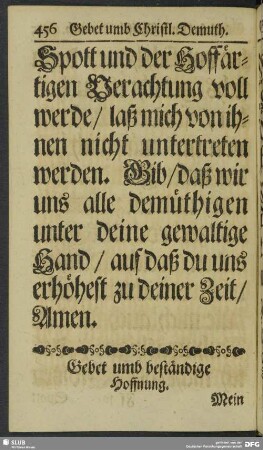 456 Gebet umb Christl. Demuth.
Spott und der Hoffär-
tigen Verachtung voll
werde / laß mich von ih-
nen nicht untertreten
werden. Gib / daß wir
uns alle demüthigen
unter deine gewaltige
Hand / auf daß du uns
erhöhest zu deiner Zeit /
Amen.
Gebet umb beständige
Hoffnung.
Mein
SLUB
DFG